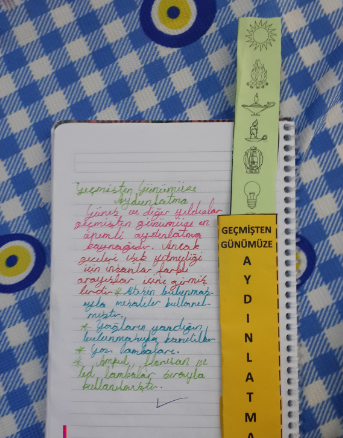 Geçmişten Günümüze
Aydınlatma
Güneş ve diğer yıldızlar
geçmişten günümüze en
önemli aydınlatma
kaynağıdır. Ancak
geceleri ışık yetmediği
için insanlar farklı
arayışlar içine girmiş
lerdir. * Ateşin bulunması
ayla meşaleler kullanıl-
mıştır.
* Yağların yandığı
bulunmasıyla kandiller
* Gaz lambaları.
* Ampul, floresan ve
led lambalar sırayla
kullanılmıştır.
GEÇMİŞTEN
GÜNÜMÜZE
A
Y
D
I
N
L
A
T
M
A